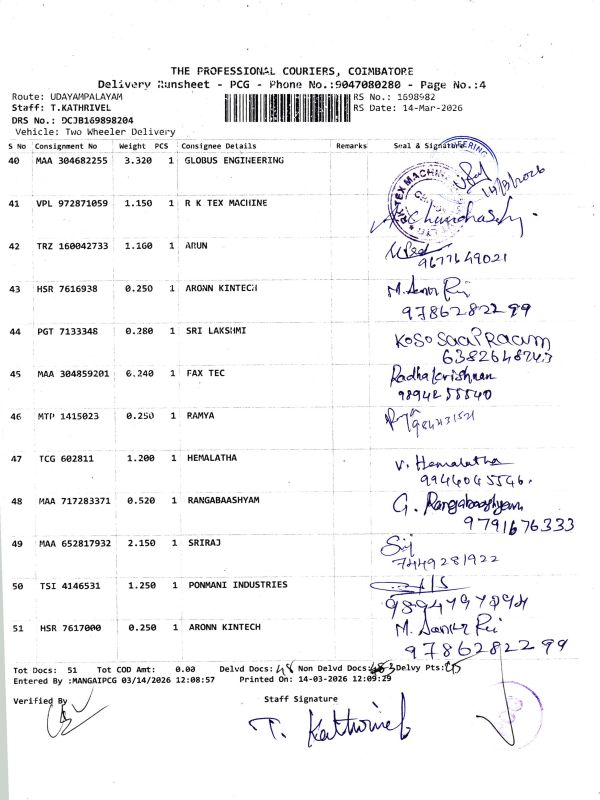 THE PROFESSIONAL COURIERS, COIMBATORE
Delivery Runsheet - PCG - Phone No.:9047080280 - Page No.:4
Route: UDAYAMPALAYAM RS No.: 1698982
Staff: T.KATHRIVEL RS Date: 14-Mar-2026
DRS No.: DCJB169898204
Vehicle: Two Wheeler Delivery
S No Consignment No Weight PCS Consignee Details Remarks Seal & Signature
40 MAA 304682255 3.320 1 GLOBUS ENGINEERING 14/3/2026
41 VPL 972871059 1.150 1 R K TEX MACHINE
42 TRZ 160042733 1.160 1 ARUN
9677649021
43 HSR 7616938 0.250 1 ARONN KINTECH
9786282299
44 PGT 7133348 0.280 1 SRI LAKSHMI
45 MAA 304859201 6.240 1 FAX TEC Radhakrishnan
9894255540
46 MTP 1415023 0.250 1 RAMYA
47 TCG 602811 1.200 1 HEMALATHA V. Hemalatha
9944045546.
48 MAA 717283371 0.520 1 RANGABAASHYAM G. Rangabaashyam
9791676333
49 MAA 652817932 2.150 1 SRIRAJ
7449281922
50 TSI 4146531 1.250 1 PONMANI INDUSTRIES
51 HSR 7617000 0.250 1 ARONN KINTECH
9786282299
Tot Docs: 51 Tot COD Amt: 0.00 Delvd Docs: 48 Non Delvd Docs: 3 Delvy Pts: 45
Entered By :MANGAIPCG 03/14/2026 12:08:57 Printed On: 14-03-2026 12:09:29
Verified By Staff Signature
T. Kathrivel